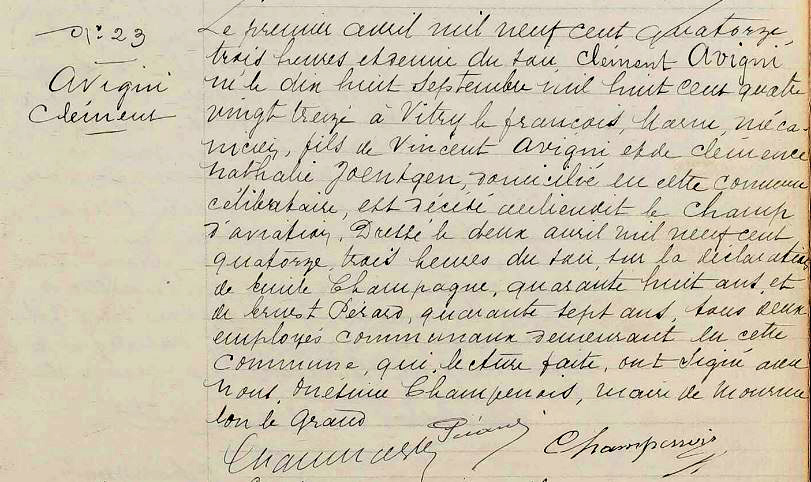 N° 23
Avigni
Clément
Le premier avril mil neuf cent quatorze,
trois heures et demie du soir Clément Avigni
né le dix huit septembre mil huit cent quatre
vingt treize à Vitry le françois, Marne, méca-
nicien, fils de Vincent Avigni et de Clémence
Nathalie Joentgen, domicilié en cette commune
célibataire, est décédé au lieudit le Champ
d'aviation. Dressé le deux avril mil neuf cent
quatorze, trois heures du soir, sur la déclaration
de Emile Champagne, quarante huit ans, et
de Ernest Pérard, quarante sept ans, tous deux
employés communaux demeurant en cette
commune, qui, lecture faite, ont signé avec
nous, Onésime Champenois, maire de Mourme
lon le Grand
Champagne Pérard Champenois